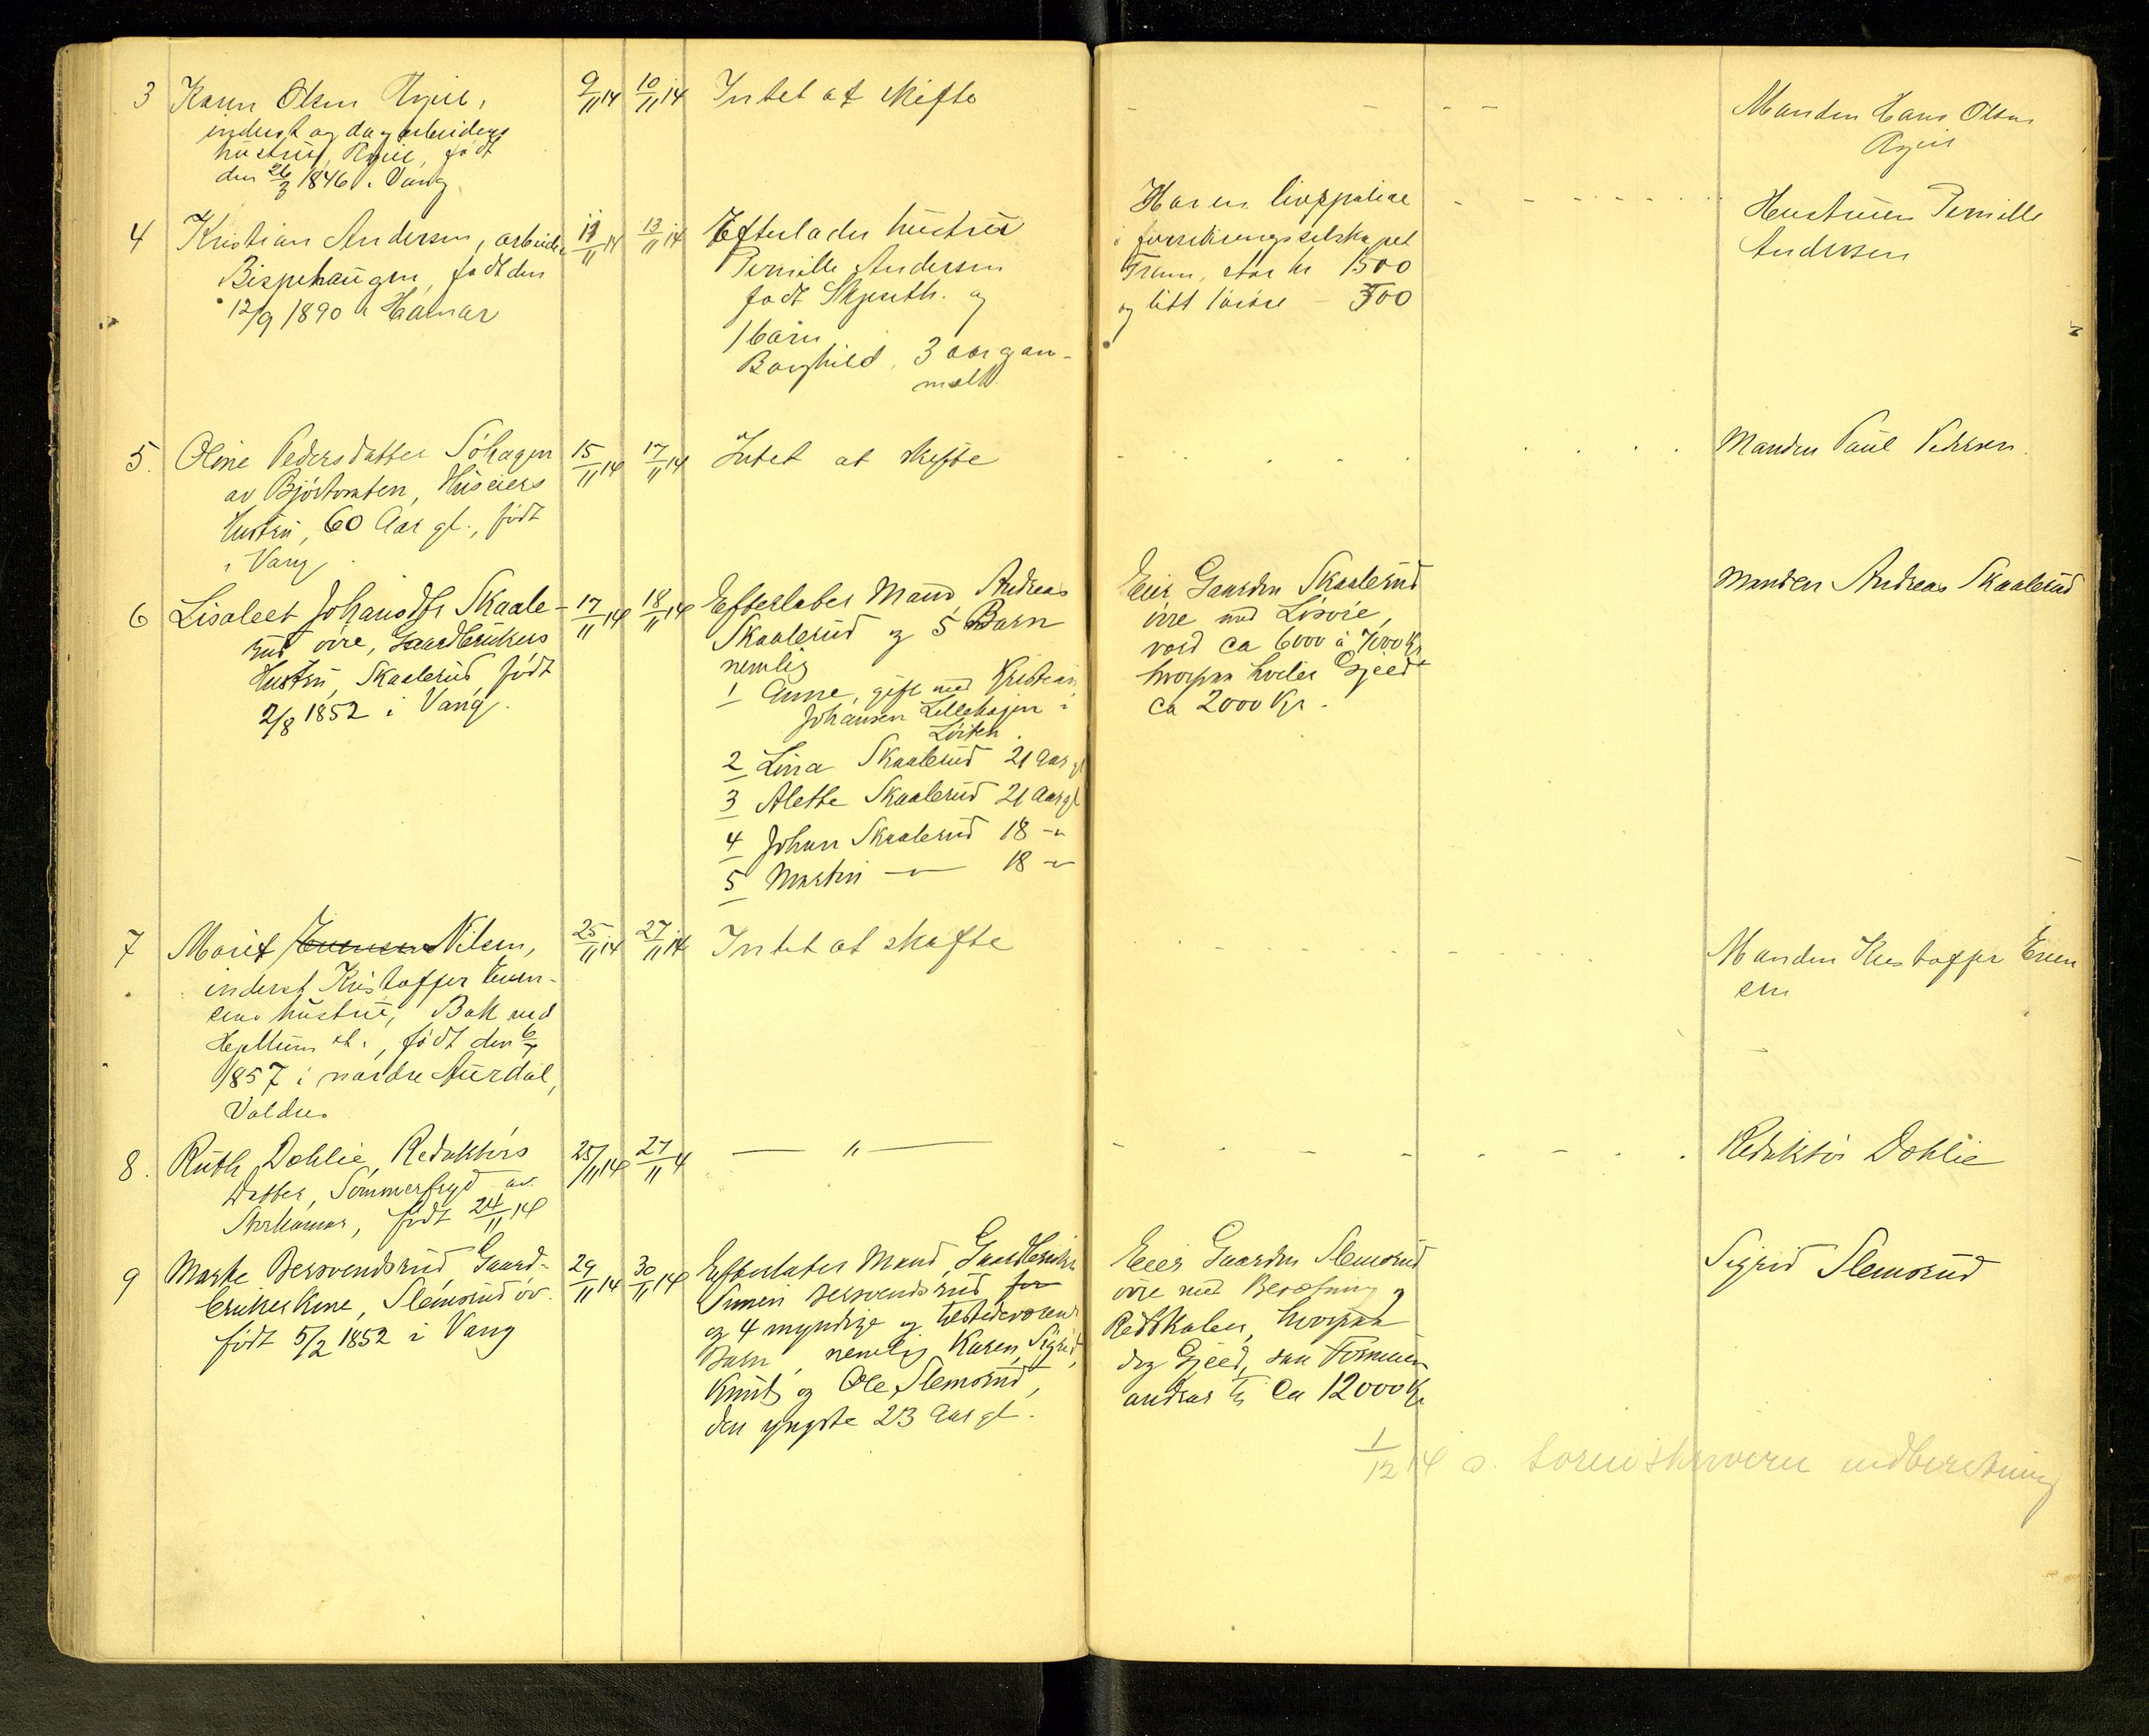 3 Karen Olsen
inderst og dagarbeiders
hustru, født
den 26/3 1846 i Vang
9/11 14
10/11 14
Intet at skifte
- - - -
Manden Hans Olsen
4 Kristian Andersen, arbeider
Bispehaugen, født den
12/9 1890 i Hamar
11/11 14
13/11 14
Efterlader hustru
Pernille Andersen
født og
1 barn
Borghild, 3 aar gam-
melt.
Har en livspolise
i forsikringsselskapet
Fram, stor kr 1500
og litt løsøre - 500
Hustruen Pernille
Andersen
5. Oline Pedersdatter Sőhagen
av Bjørtomten, Huseiers
Hustru, 60 Aar gl., født
i Vang
15/11 14
17/11 14
Intet at skifte
Manden Paul Pedersen.
6 Lisabet Johansdtr Skaale-
rud øvre, Gaardbrukers
Hustru, Skaalerud født
2/8 1852 i Vang.
17/11 14
18/11 14
Efterlater Mand Andreas
Skaalerud og 5 Barn
nemlig
1 Anne, gift med Kristian
Johansen Lillehagen i
Løiten.
2 Lina Skaalerud 21 Aar gl
3 Alette Skaalerud 21 Aar gl
4 Johan Skaalerud 18 -"-
5 Martin -"- 18 -"-
Eier Gaarden Skaalerud
øvre med Løsøre,
værd ca 6000 á 7000 Kr
hvorpaa hviler Gjeld
ca 2000 Kr.
Manden Andreas Skaalerud
7 Marit Evensen Nilsen,
inderst Kristoffer Even-
sens hustru, Bak ved
Hjellum st., født den 6/7
1857 i nordre Aurdal,
Valdres
25/11 14
27/11 14
Intet at skifte
Manden Kristoffer Even
sen
8. Ruth Dohlie, Redaktørs
Datter, Sommerfryd av
Storhamar, født 24/11 14
25/11 14
27/11 4
— " —
Redaktør Dohlie
9 Marte Bersvendsrud Gaard-
brukerkone, Slemsrud øv.
født 5/2 1852 i Vang
29/11 14
30/11 14
Efterlater Mand, Gaardbruker
Simen Bersvendsrud for
og 4 myndige og tilstedeværende
Barn, nemlig Karen, Sigrid,
Knut og Ole Slemsrud,
den yngste 23 Aar gl.
Eier Gaarden Slemsrud
øvre med Besetning og
Redskaber, hvorpaa
dog Gjeld, saa Formuen
andrar til Ca 12000 Kr
Sigrid Slemsrud
1/12 14 s. Sorenskriveren indberetning